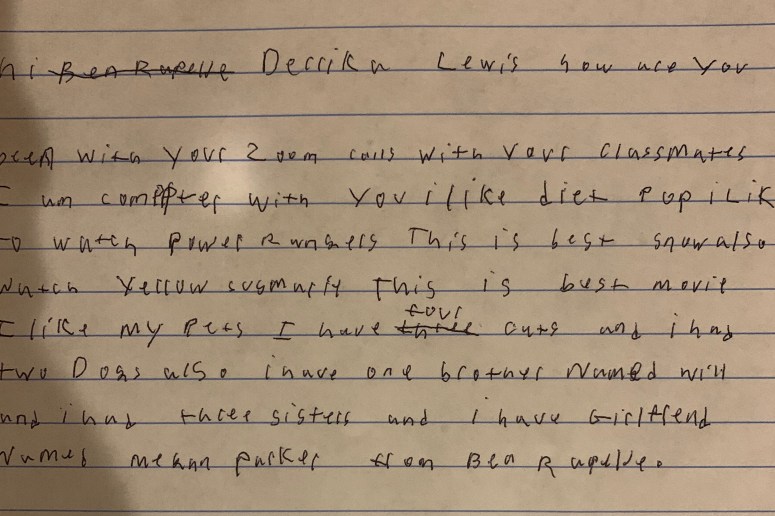 hi Ben Rapelle Derrika Lewis how are you
been with your zoom calls with your classmates
I am compter with you i like diet Pop i Lik
to watch Power Rangers This is best show also
Watch Yellow submarly This is best movie
I like my Pets I have three four cats and i had
two Dogs also i have one brother Named will
and i had three sisters and I have Girlfrend
Named mekan parker from Ben Rapelle.